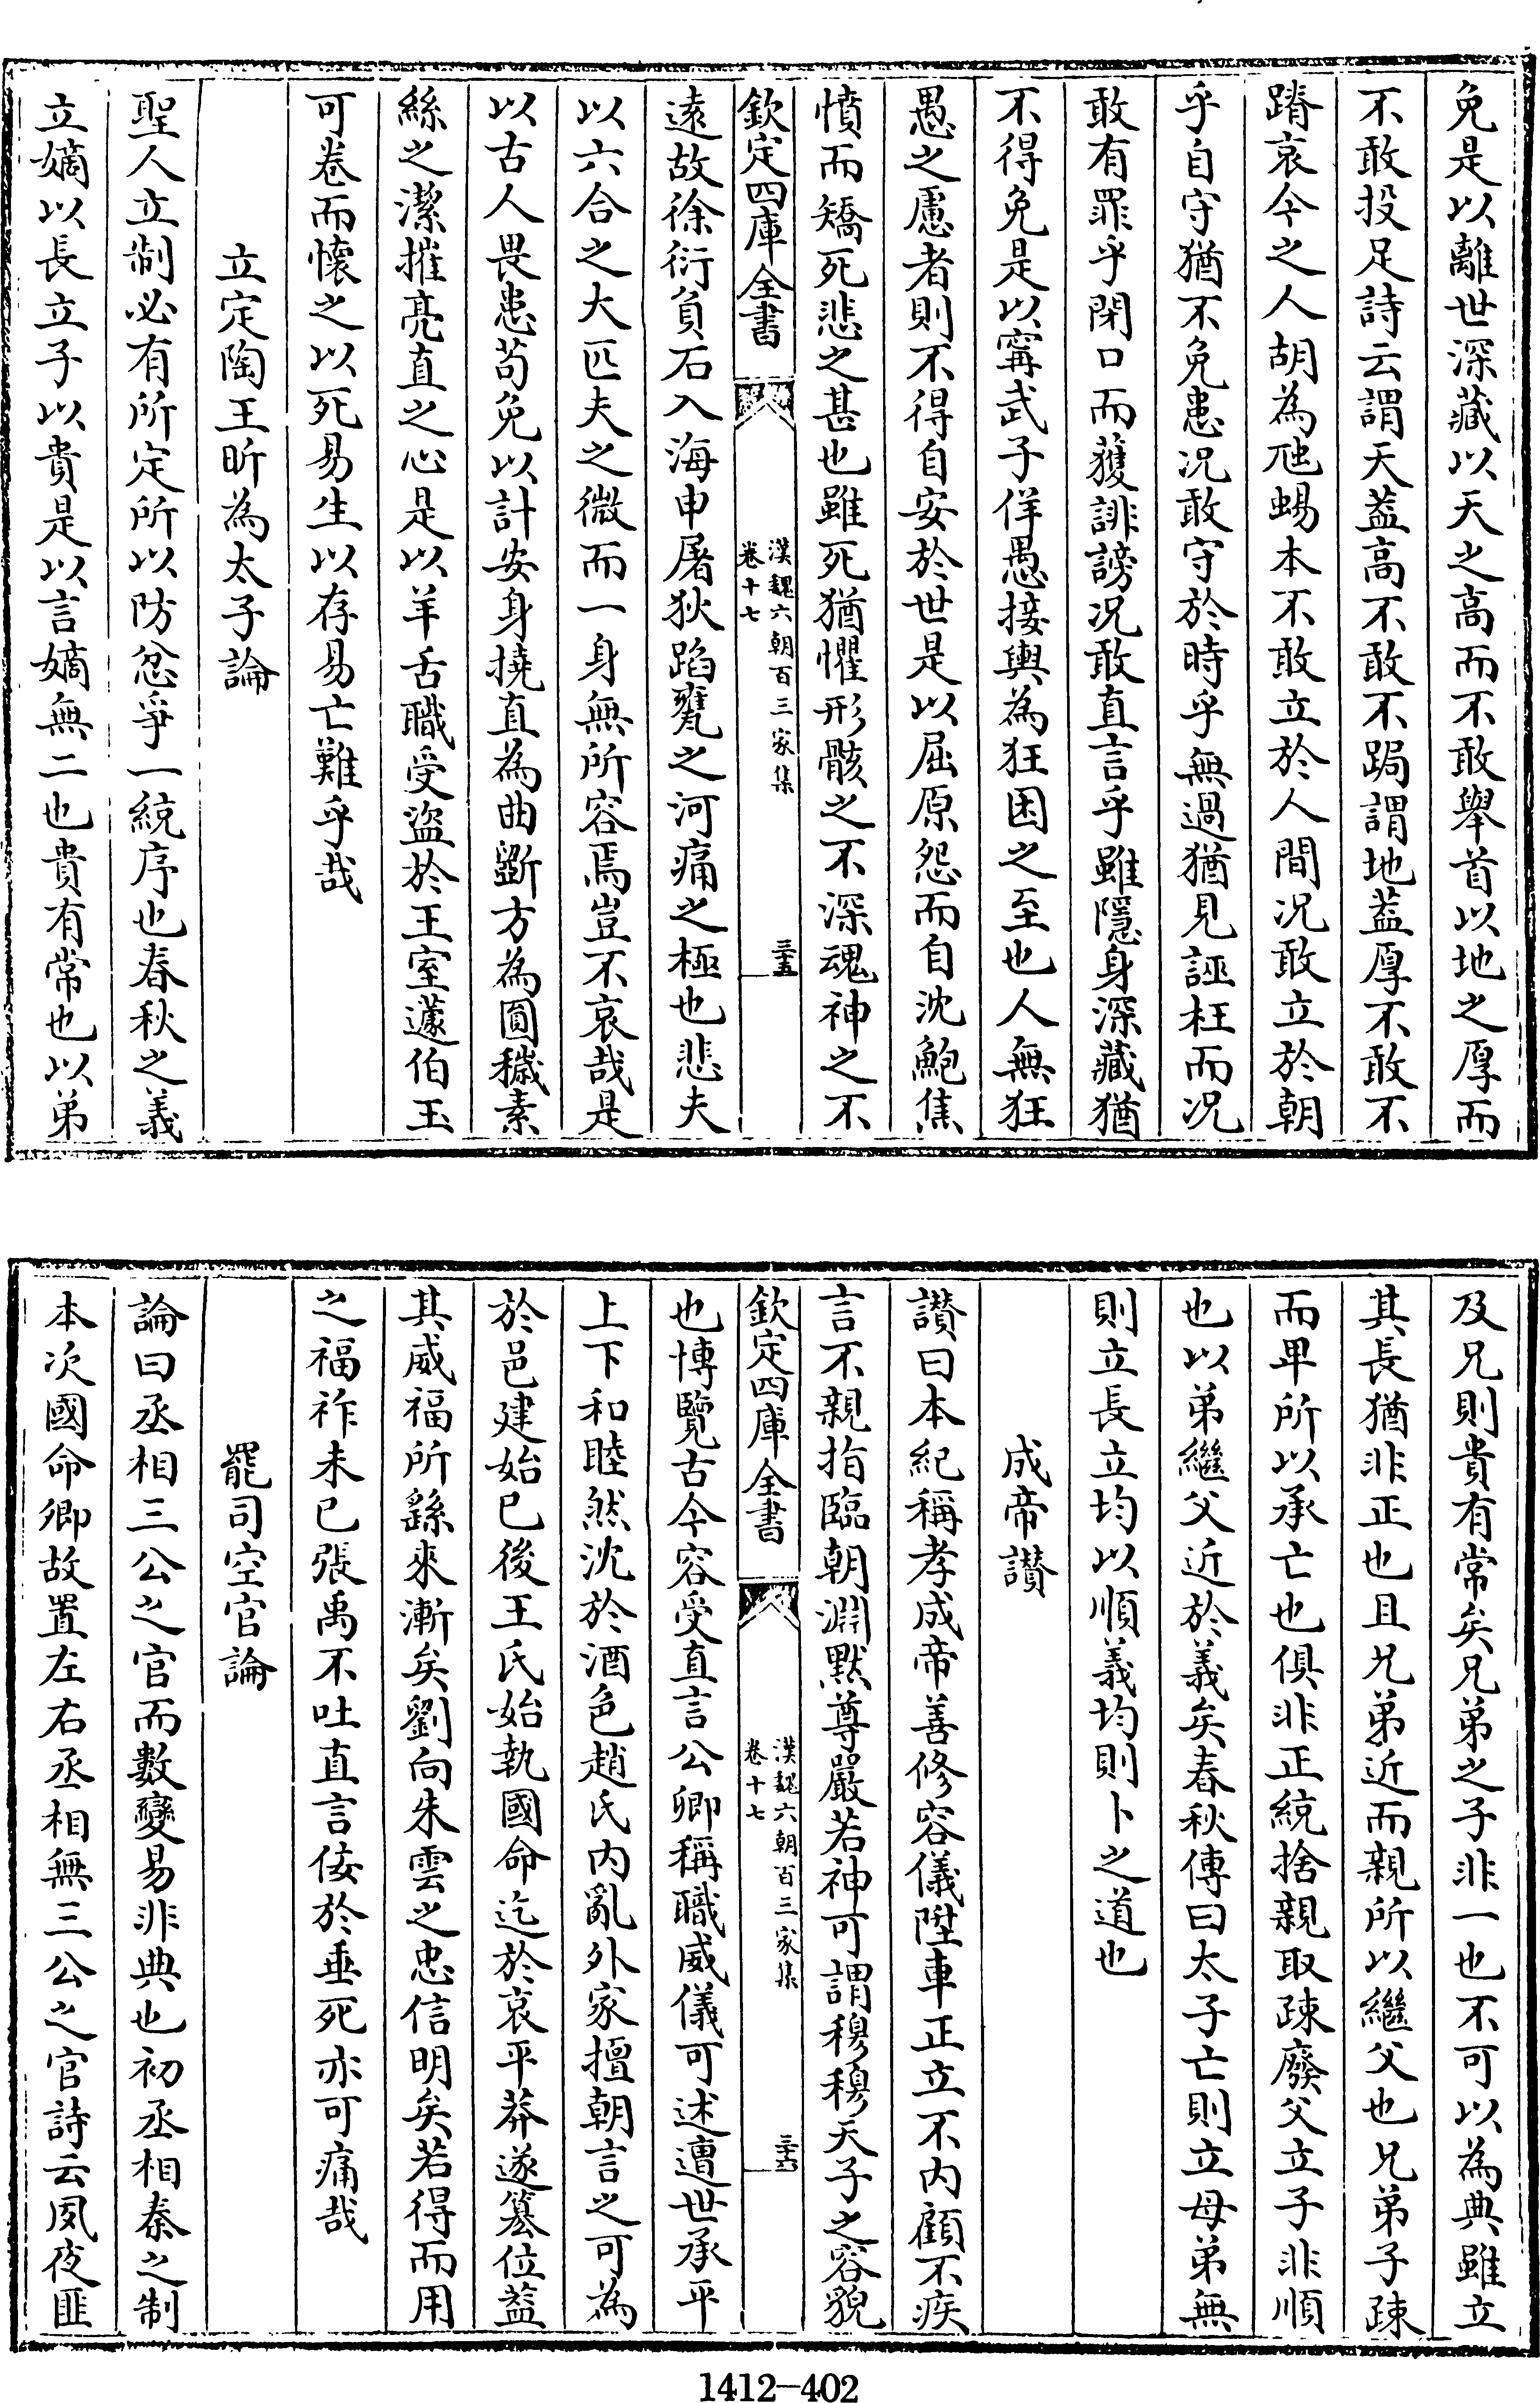 免是以離世深藏以天之高而不敢舉首以地之厚而
不敢投足詩云謂天蓋高不敢不跼謂地蓋厚不敢不
蹐哀今之人胡為虺蜴本不敢立於人間况敢立於朝
乎自守猶不免患况敢守於時乎無過猶見誣枉而况
敢有罪乎閉口而獲誹謗况敢直言乎雖隱身深藏猶
不得免是以寗武子佯愚接輿為狂困之至也人無狂
愚之慮者則不得自安於世是以屈原怨而自沈鮑焦
憤而矯死悲之甚也雖死猶懼形骸之不深魂神之不
欽定四庫全書
漢魏六朝百三家集
卷十七
三十五
遠故徐衍負石入海申屠狄蹈甕之河痛之極也悲夫
以六合之大匹夫之微而一身無所容焉豈不哀哉是
以古人畏患苟免以計安身撓直為曲斵方為圓穢素
絲之潔摧亮直之心是以羊舌職受盜於王室蘧伯玉
可卷而懷之以死易生以存易亡難乎哉
立定陶王昕為太子論
聖人立制必有所定所以防忿爭一統序也春秋之義
立嫡以長立子以貴是以言嫡無二也貴有常也以弟
及兄則貴有常矣兄弟之子非一也不可以為典雖立
其長猶非正也且兄弟近而親所以繼父也兄弟子疎
而卑所以承亡也俱非正統捨親取疎廢父立子非順
也以弟繼父近於義矣春秋傳曰太子亡則立母弟無
則立長立均以順義均則卜之道也
成帝讃
讃曰本紀稱孝成帝善修容儀陞車正立不内顧不疾
言不親指臨朝淵黙尊嚴若神可謂穆穆天子之容貌
欽定四庫全書
漢魏六朝百三家集
卷十七
三十六
也博覽古今容受直言公卿稱職威儀可述遭世承平
上下和睦然沈於酒色趙氏内亂外家擅朝言之可為
於邑建始已後王氏始執國命迄於哀平莽遂簒位蓋
其威福所繇來漸矣劉向朱雲之忠信明矣若得而用
之福祚未已張禹不吐直言佞於垂死亦可痛哉
罷司空官論
論曰丞相三公之官而數變易非典也初丞相秦之制
本次國命卿故置左右丞相無三公之官詩云夙夜匪
1412—402